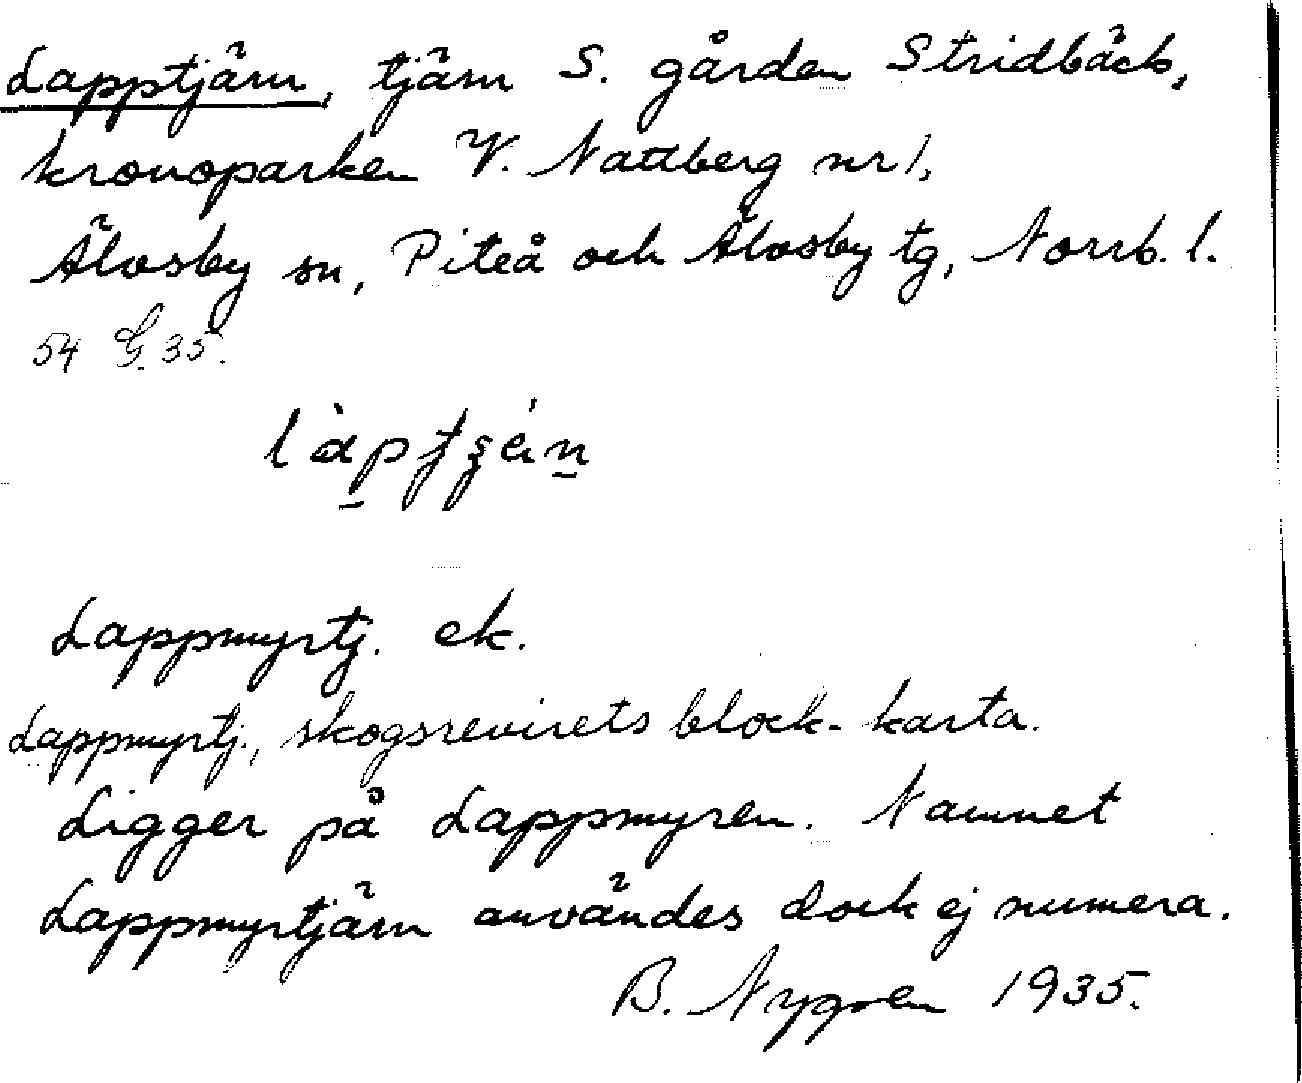 Lapptjärn, tjärn S. gården Stridbäck,
kronoparken V. Nattberg nr 1,
Älvsby sn, Piteå och Älvsby tg, Norrb. l.
54 G. 35.
Lappmyrtj. ek.
Lappmyrtj., skogsrevirets block-karta.
Ligger på Lappmyren. Namnet
Lappmyrtjärn användes dock ej numera.
B. Nygren 1935.